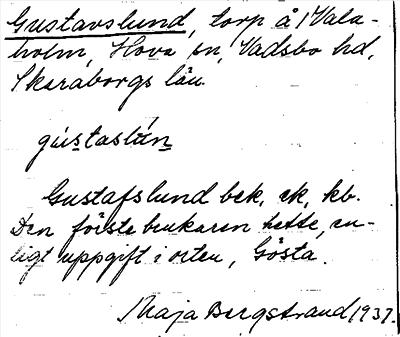 Gustavslund, torp å Vala-
holm, Hova sn, Vadsbo hd,
Skaraborgs län.
gústaslùn
Gustafslund bek, ek, kb.
Den förste brukaren hette, en-
ligt uppgift i orten, Gösta.
Maja Bergstrand 1937.